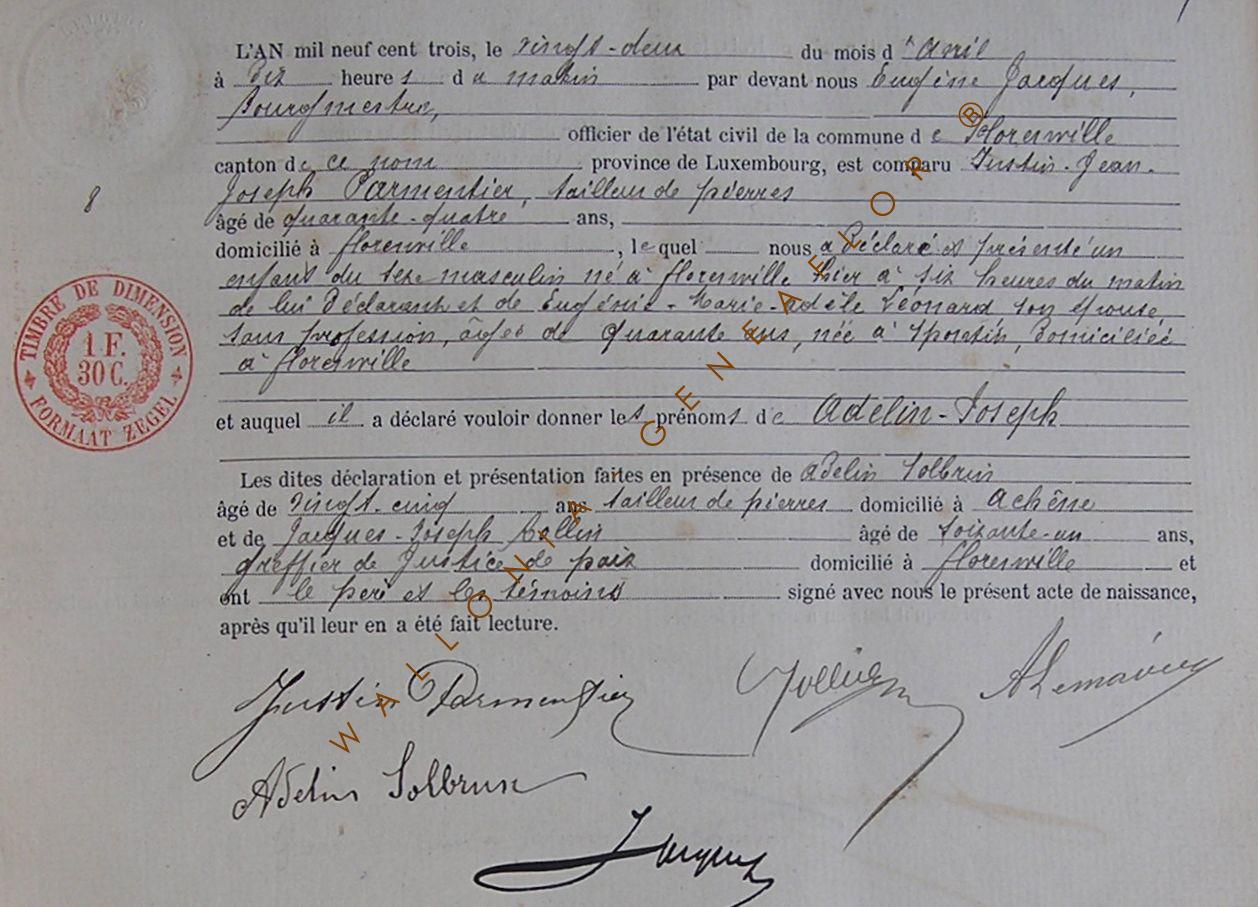 L'AN mil neuf cent trois, le vingt-deux du mois d'avril
à dix heures du matin par devant nous Eugène Jacques,
bourgmestre,
officier de l'état civil de la commune de Florenville
canton de ce nom province de Luxembourg, est comparu Justin-Jean-
Joseph Parmentier, tailleur de pierres
âgé de quarante-quatre ans,
8
domicilié à Florenville, lequel nous a déclaré et présenté un
enfant du sexe masculin né à Florenville hier à six heures du matin
de lui déclarant et de Eugénie-Marie-Adèle Léonard son épouse,
sans profession, âgée de quarante ans, née à Spontin, domiciliée
à Florenville
TIMBRE DE DIMENSION
1 F.
30 C.
FORMAAT ZEGEL
et auquel il a déclaré vouloir donner les prénoms de Adelin-Joseph
Les dites déclaration et présentation faites en présence de Adelin Solbrun
âgé de vingt-cinq ans tailleur de pierres domicilié à Achêne
et de Jacques-Joseph âgé de soixante-un ans,
greffier de Justice de paix domicilié à Florenville et
ont le père et les témoins signé avec nous le présent acte de naissance,
après qu'il leur en a été fait lecture.
Justin Parmentier
Adelin Solbrun
Jacques
WALLONIA GENEAFLOR ®